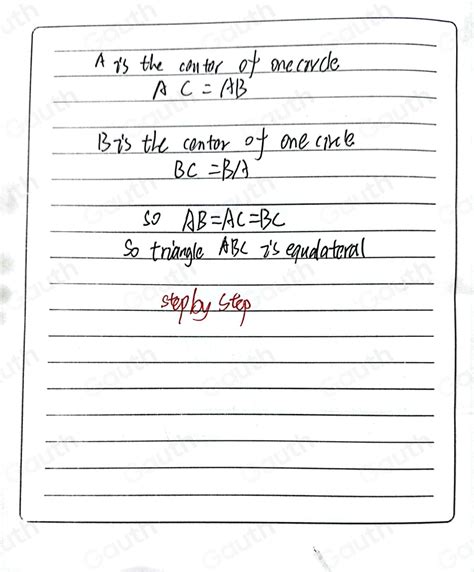 A is the contor of one circle
A C = AB
B is the contor of one circle
BC = BA
so AB=AC=BC
So triangle ABC is equdateral
step by step
Gauth